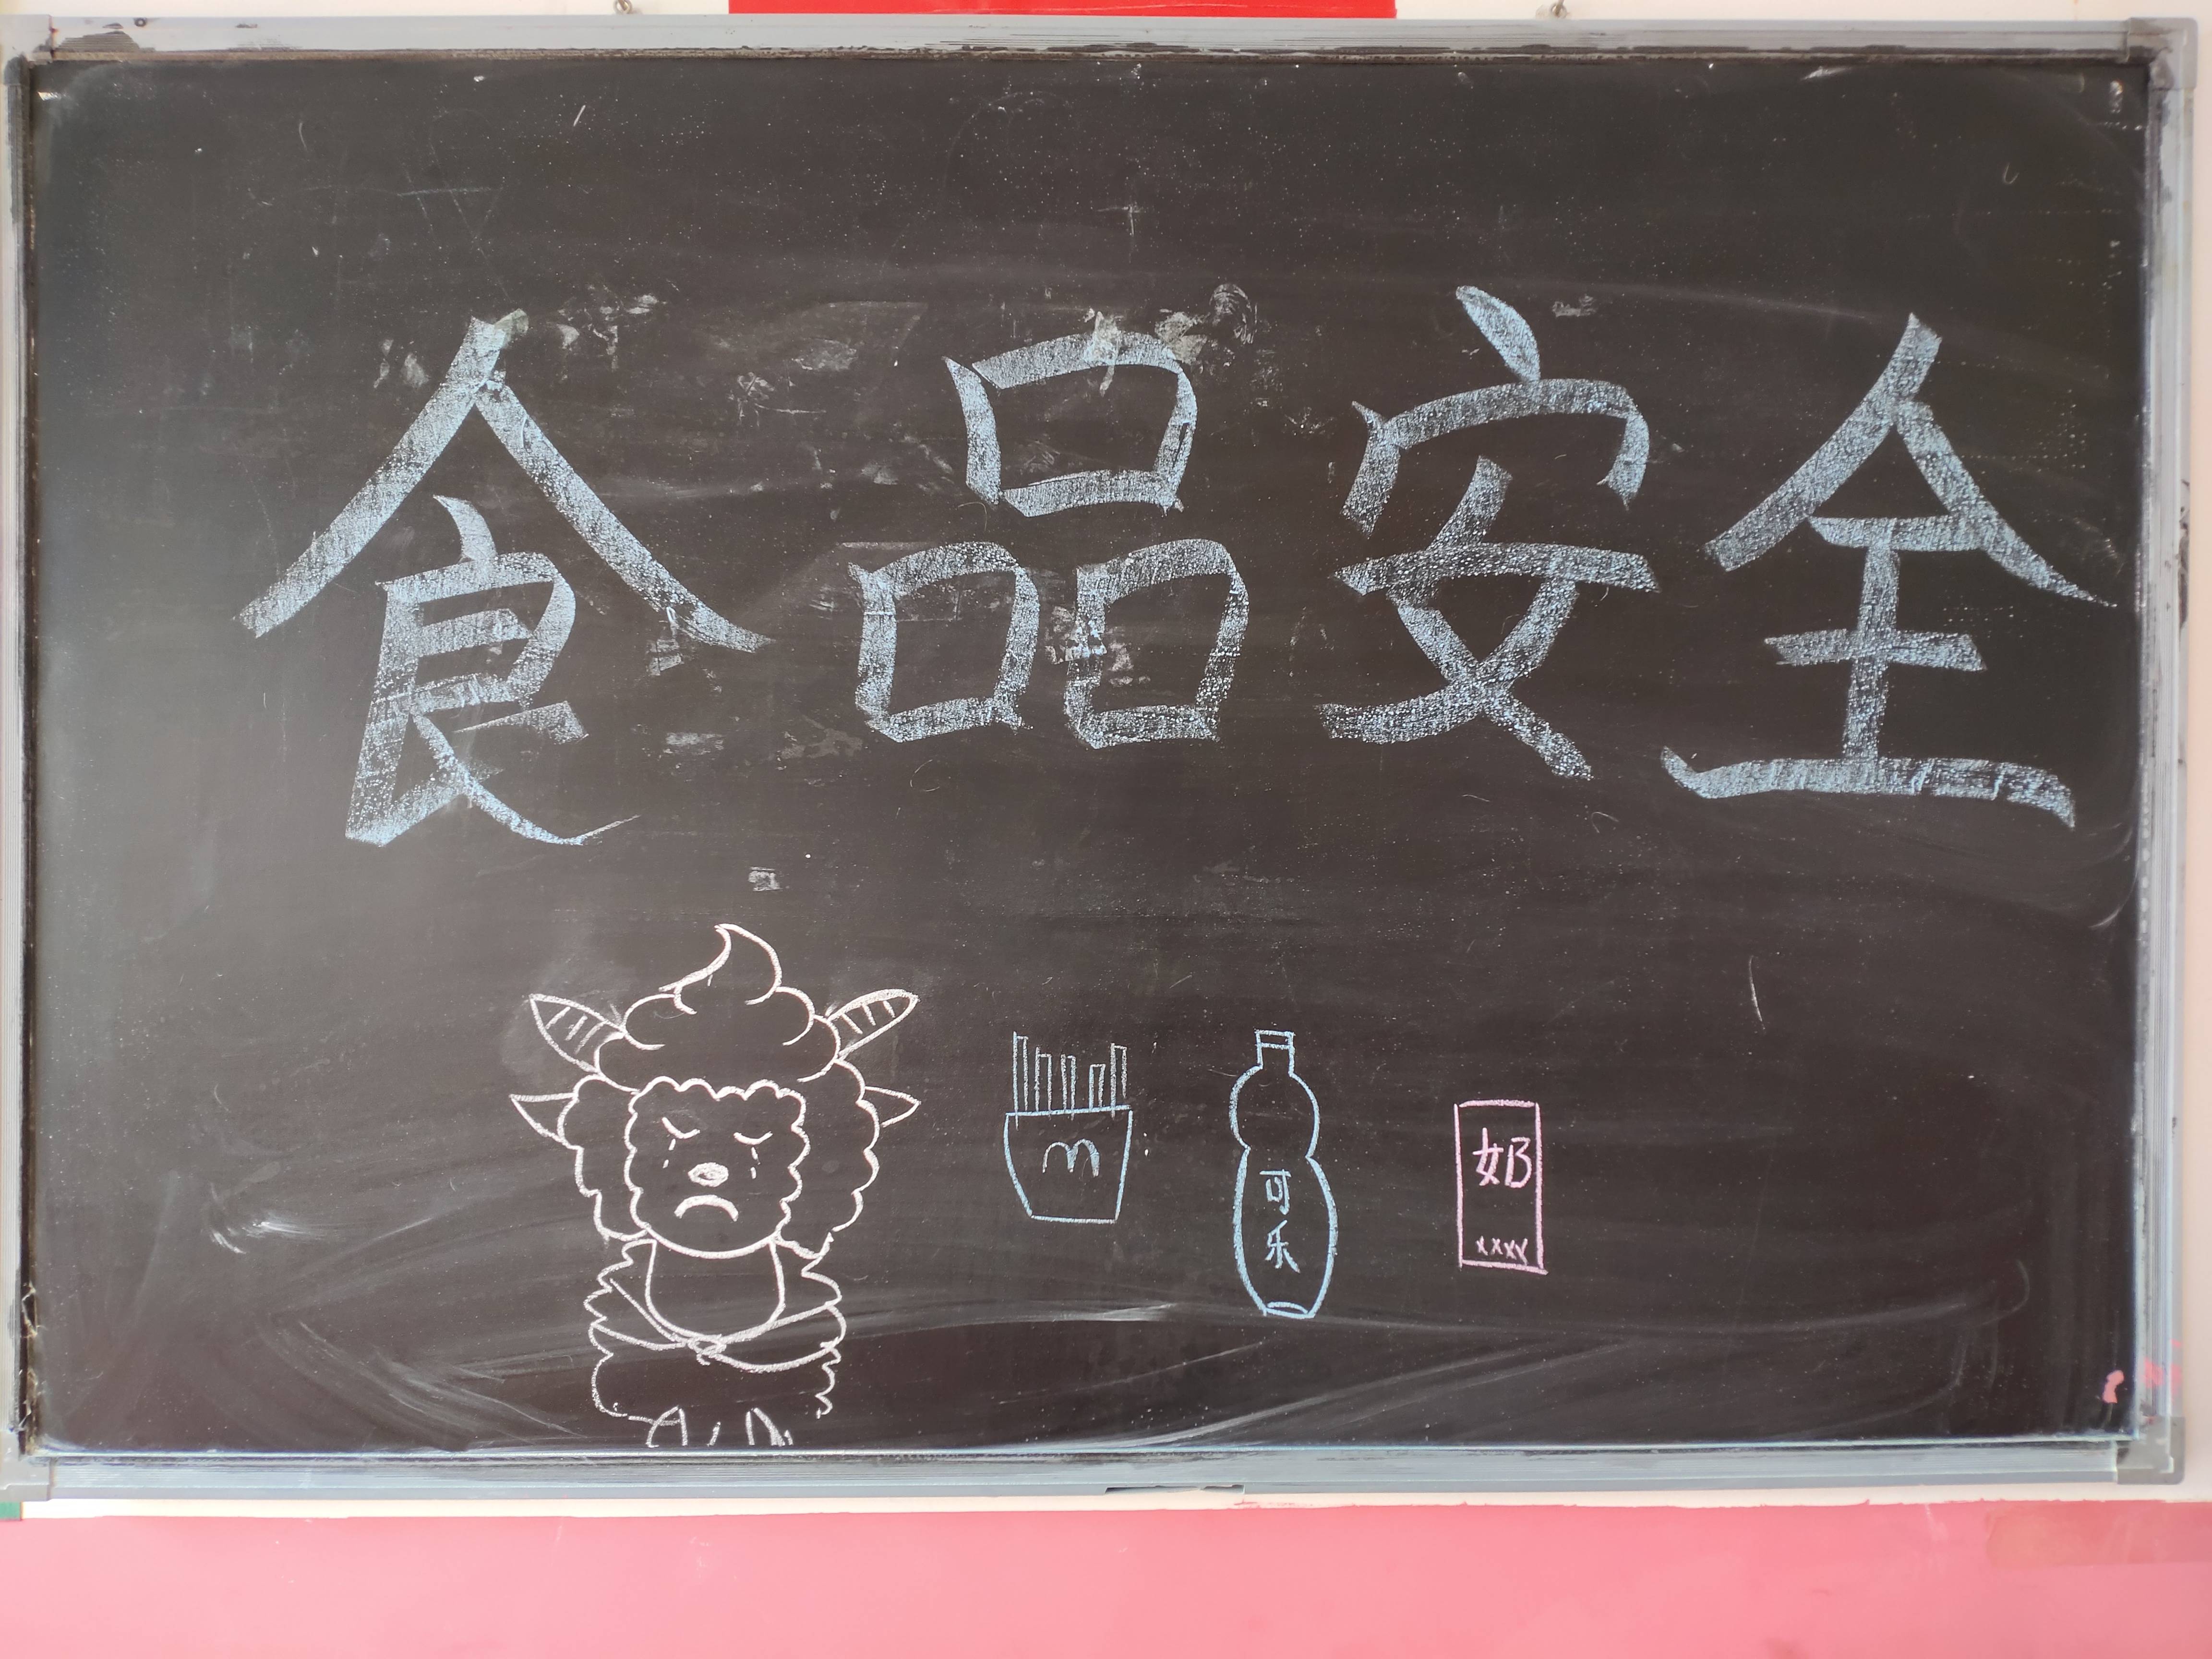 食品安全
m
可
乐
奶
xxxx